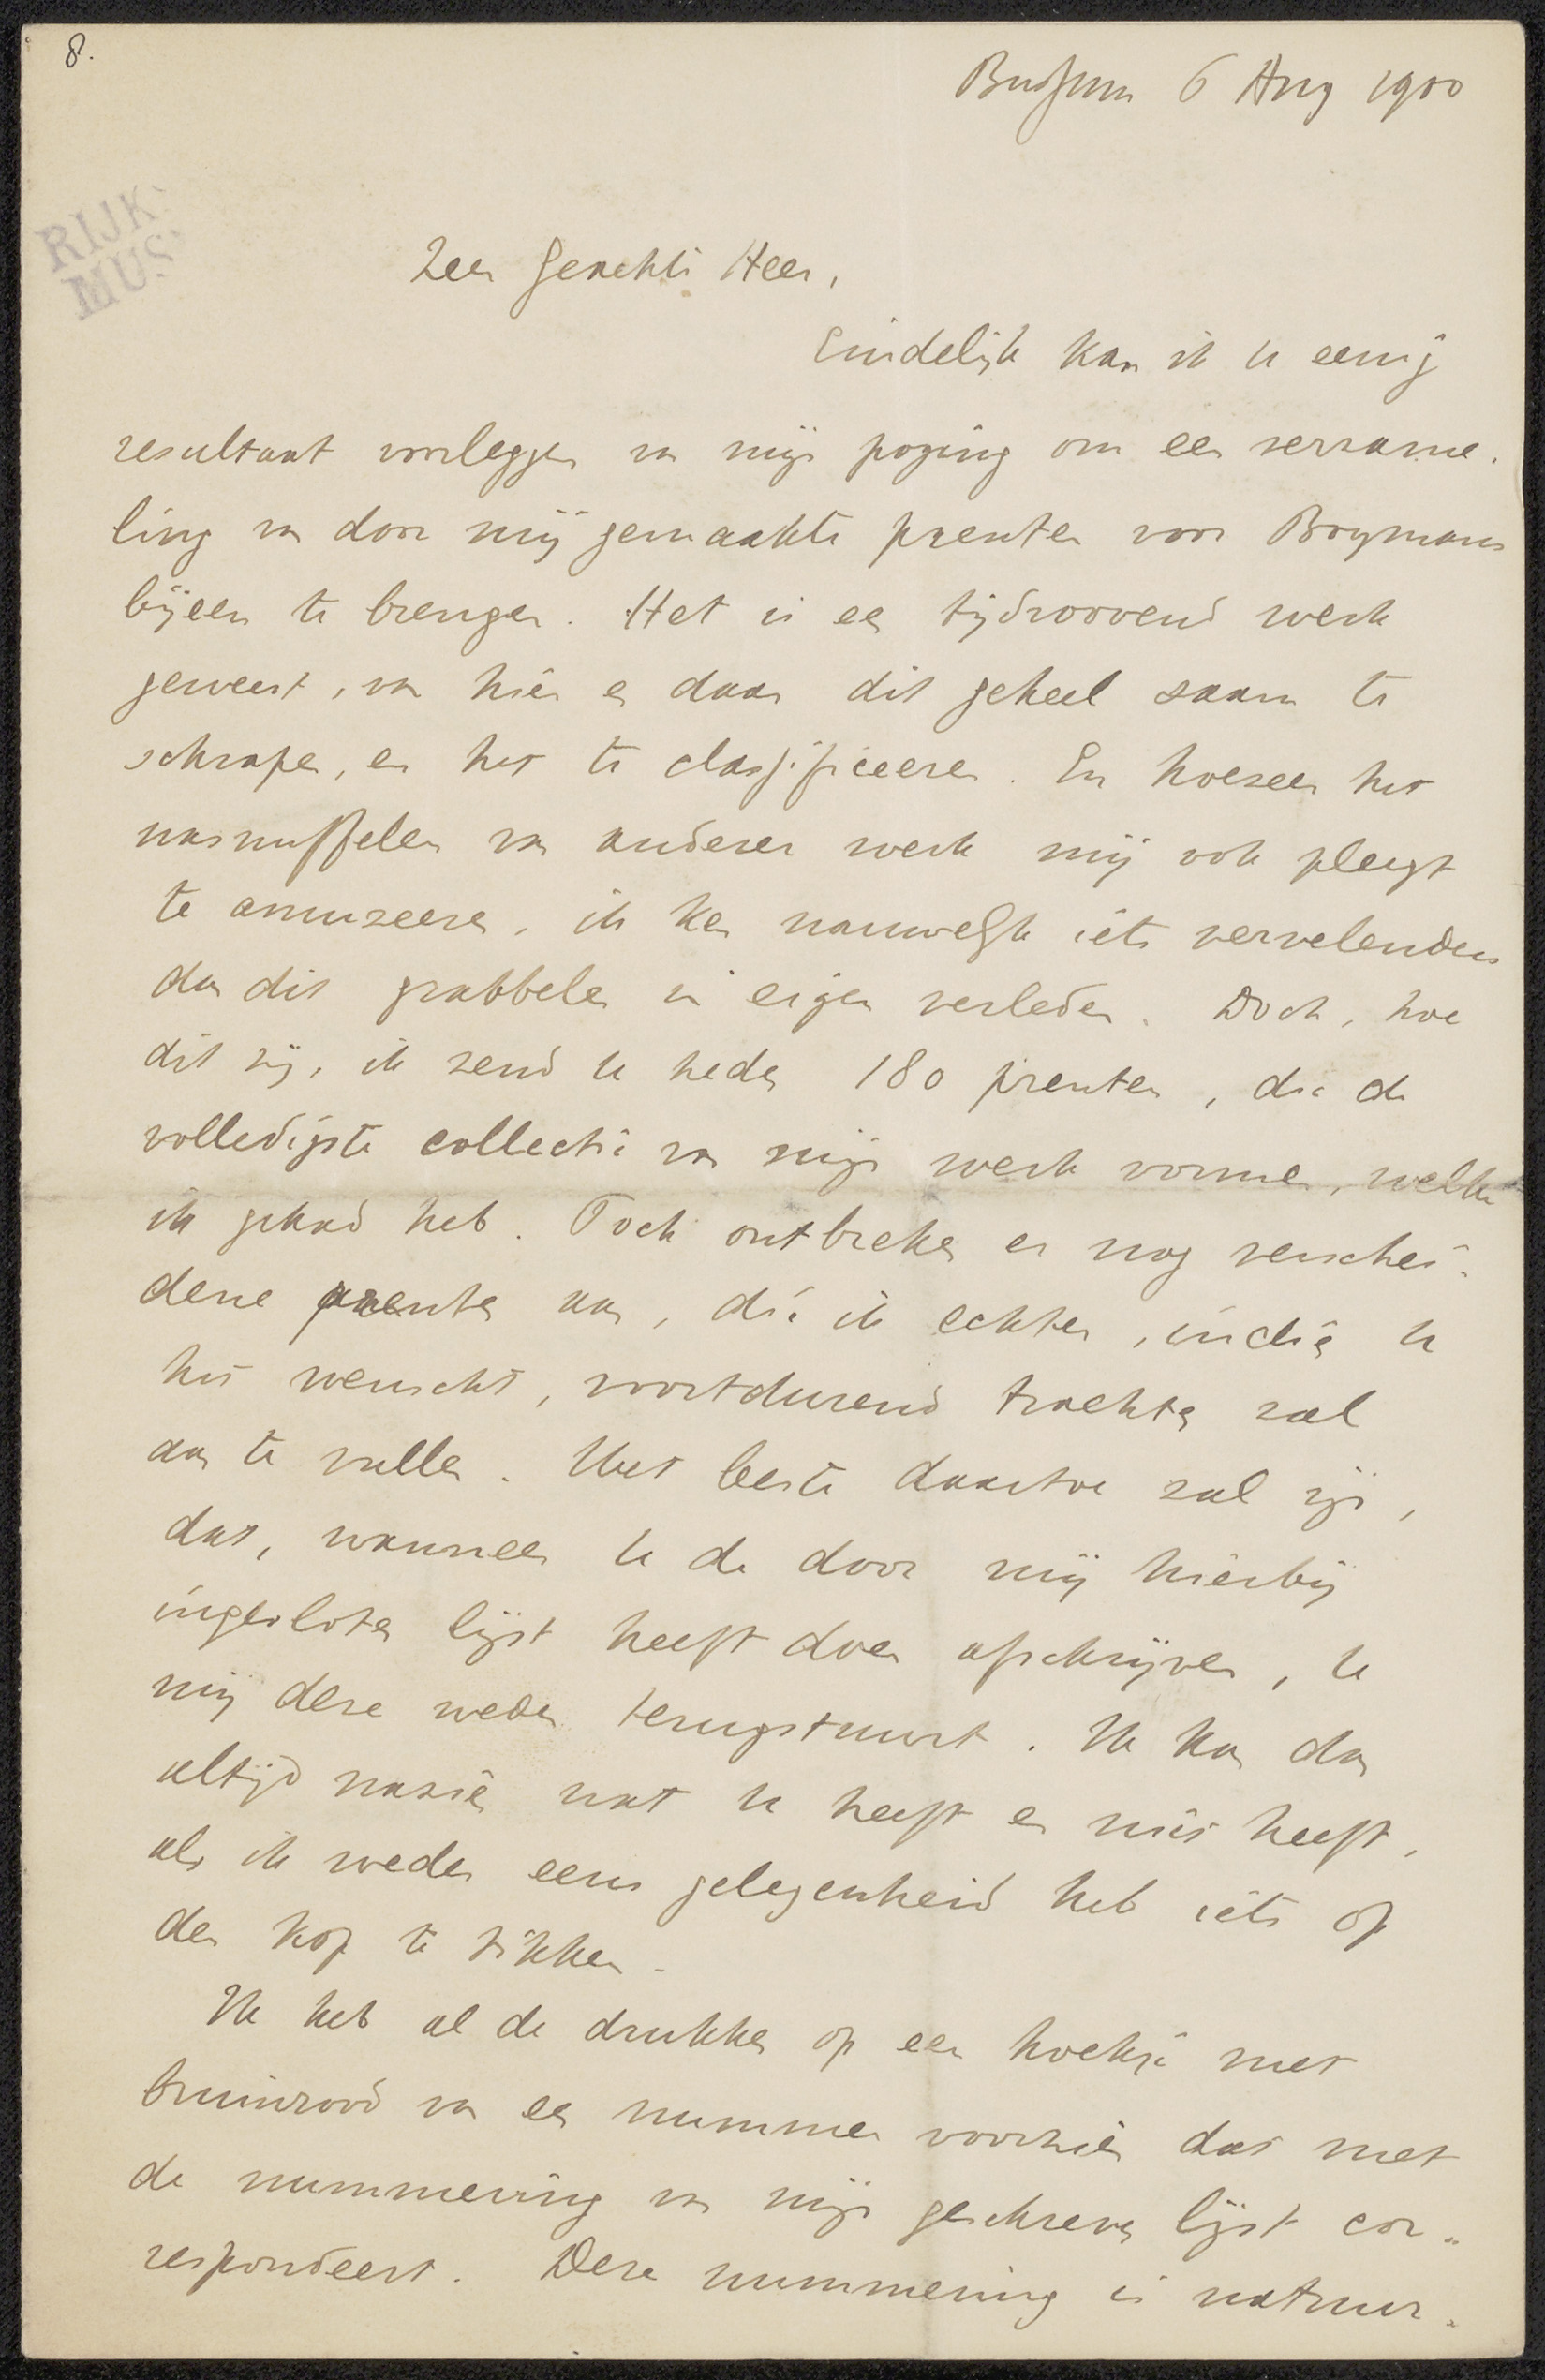 8.
Bussum 6 Aug 1900
RIJKS
MUS
Zeer Geachte Heer,
Eindelijk kan ik u eenig
resultaat voorleggen van mijn poging om een verzame-
ling van door mij gemaakte prenten voor Boymans
bijeen te brengen. Het is een tijdroovend werk
geweest, van hier en daar dit geheel saam te
schrapen, en het te classificeeren. En hoezeer het
nasnuffelen van anderer werk mij ook pleegt
te amuseeren, ik ken nauwelijk iets vervelenders
dan dit grabbelen in eigen verleden. Doch, hoe
dit zij, ik zend u heden 180 prenten, die de
volledigste collectie van mijn werk vormen, welke
ik gehad heb. Toch ontbreken er nog verschei-
dene prenten aan, die ik echter, indien u
het wenscht, voortdurend trachten zal
aan te vullen. Het beste daartoe zal zijn,
dat, wanneer u de door mij hierbij
ingesloten lijst heeft doen afschrijven, u
mij deze weder terugstuurt. Ik kan dan
altijd nazien wat u heeft en niet heeft,
als ik weder eens gelegenheid heb iets op
den kop te tikken.
Ik heb al de drukken op een hoekje met
bruinrood van een nummer voorzien dat met
de nummering van mijn geschreven lijst cor-
respondeert. Deze nummering is natuur-